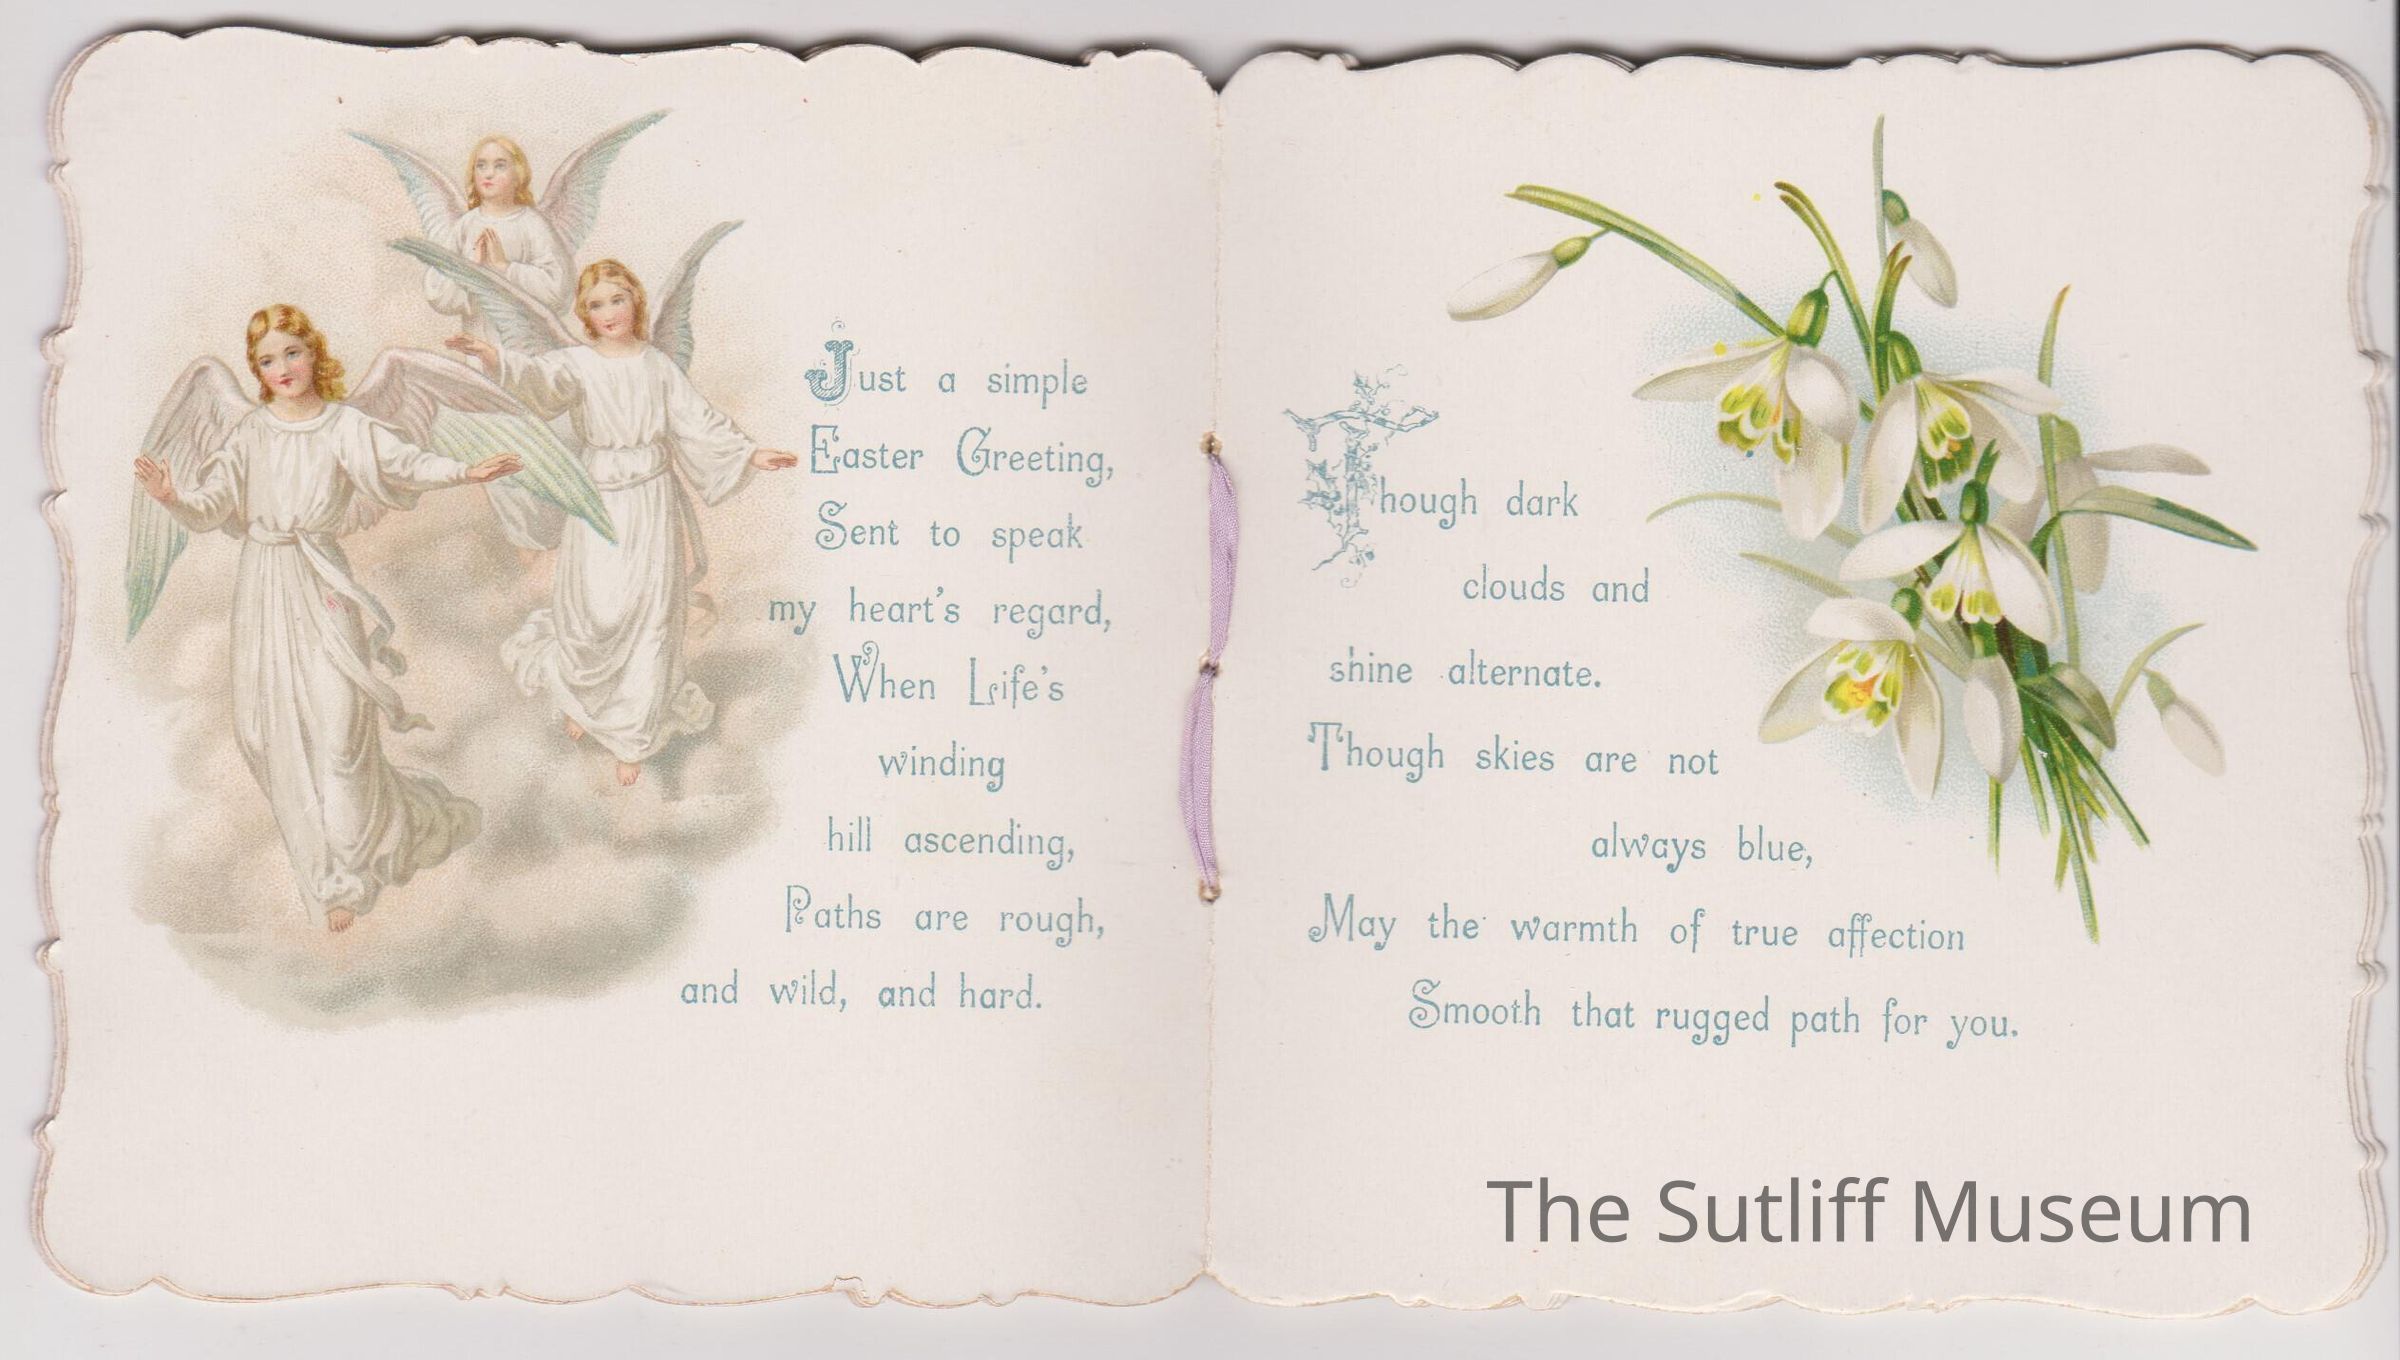 Just a simple
Easter Greeting,
Sent to speak
my heart's regard,
When Life's
winding
hill ascending,
Paths are rough,
and wild, and hard.
Though dark
clouds and
shine alternate.
Though skies are not
always blue,
May the warmth of true affection
Smooth that rugged path for you.
The Sutliff Museum